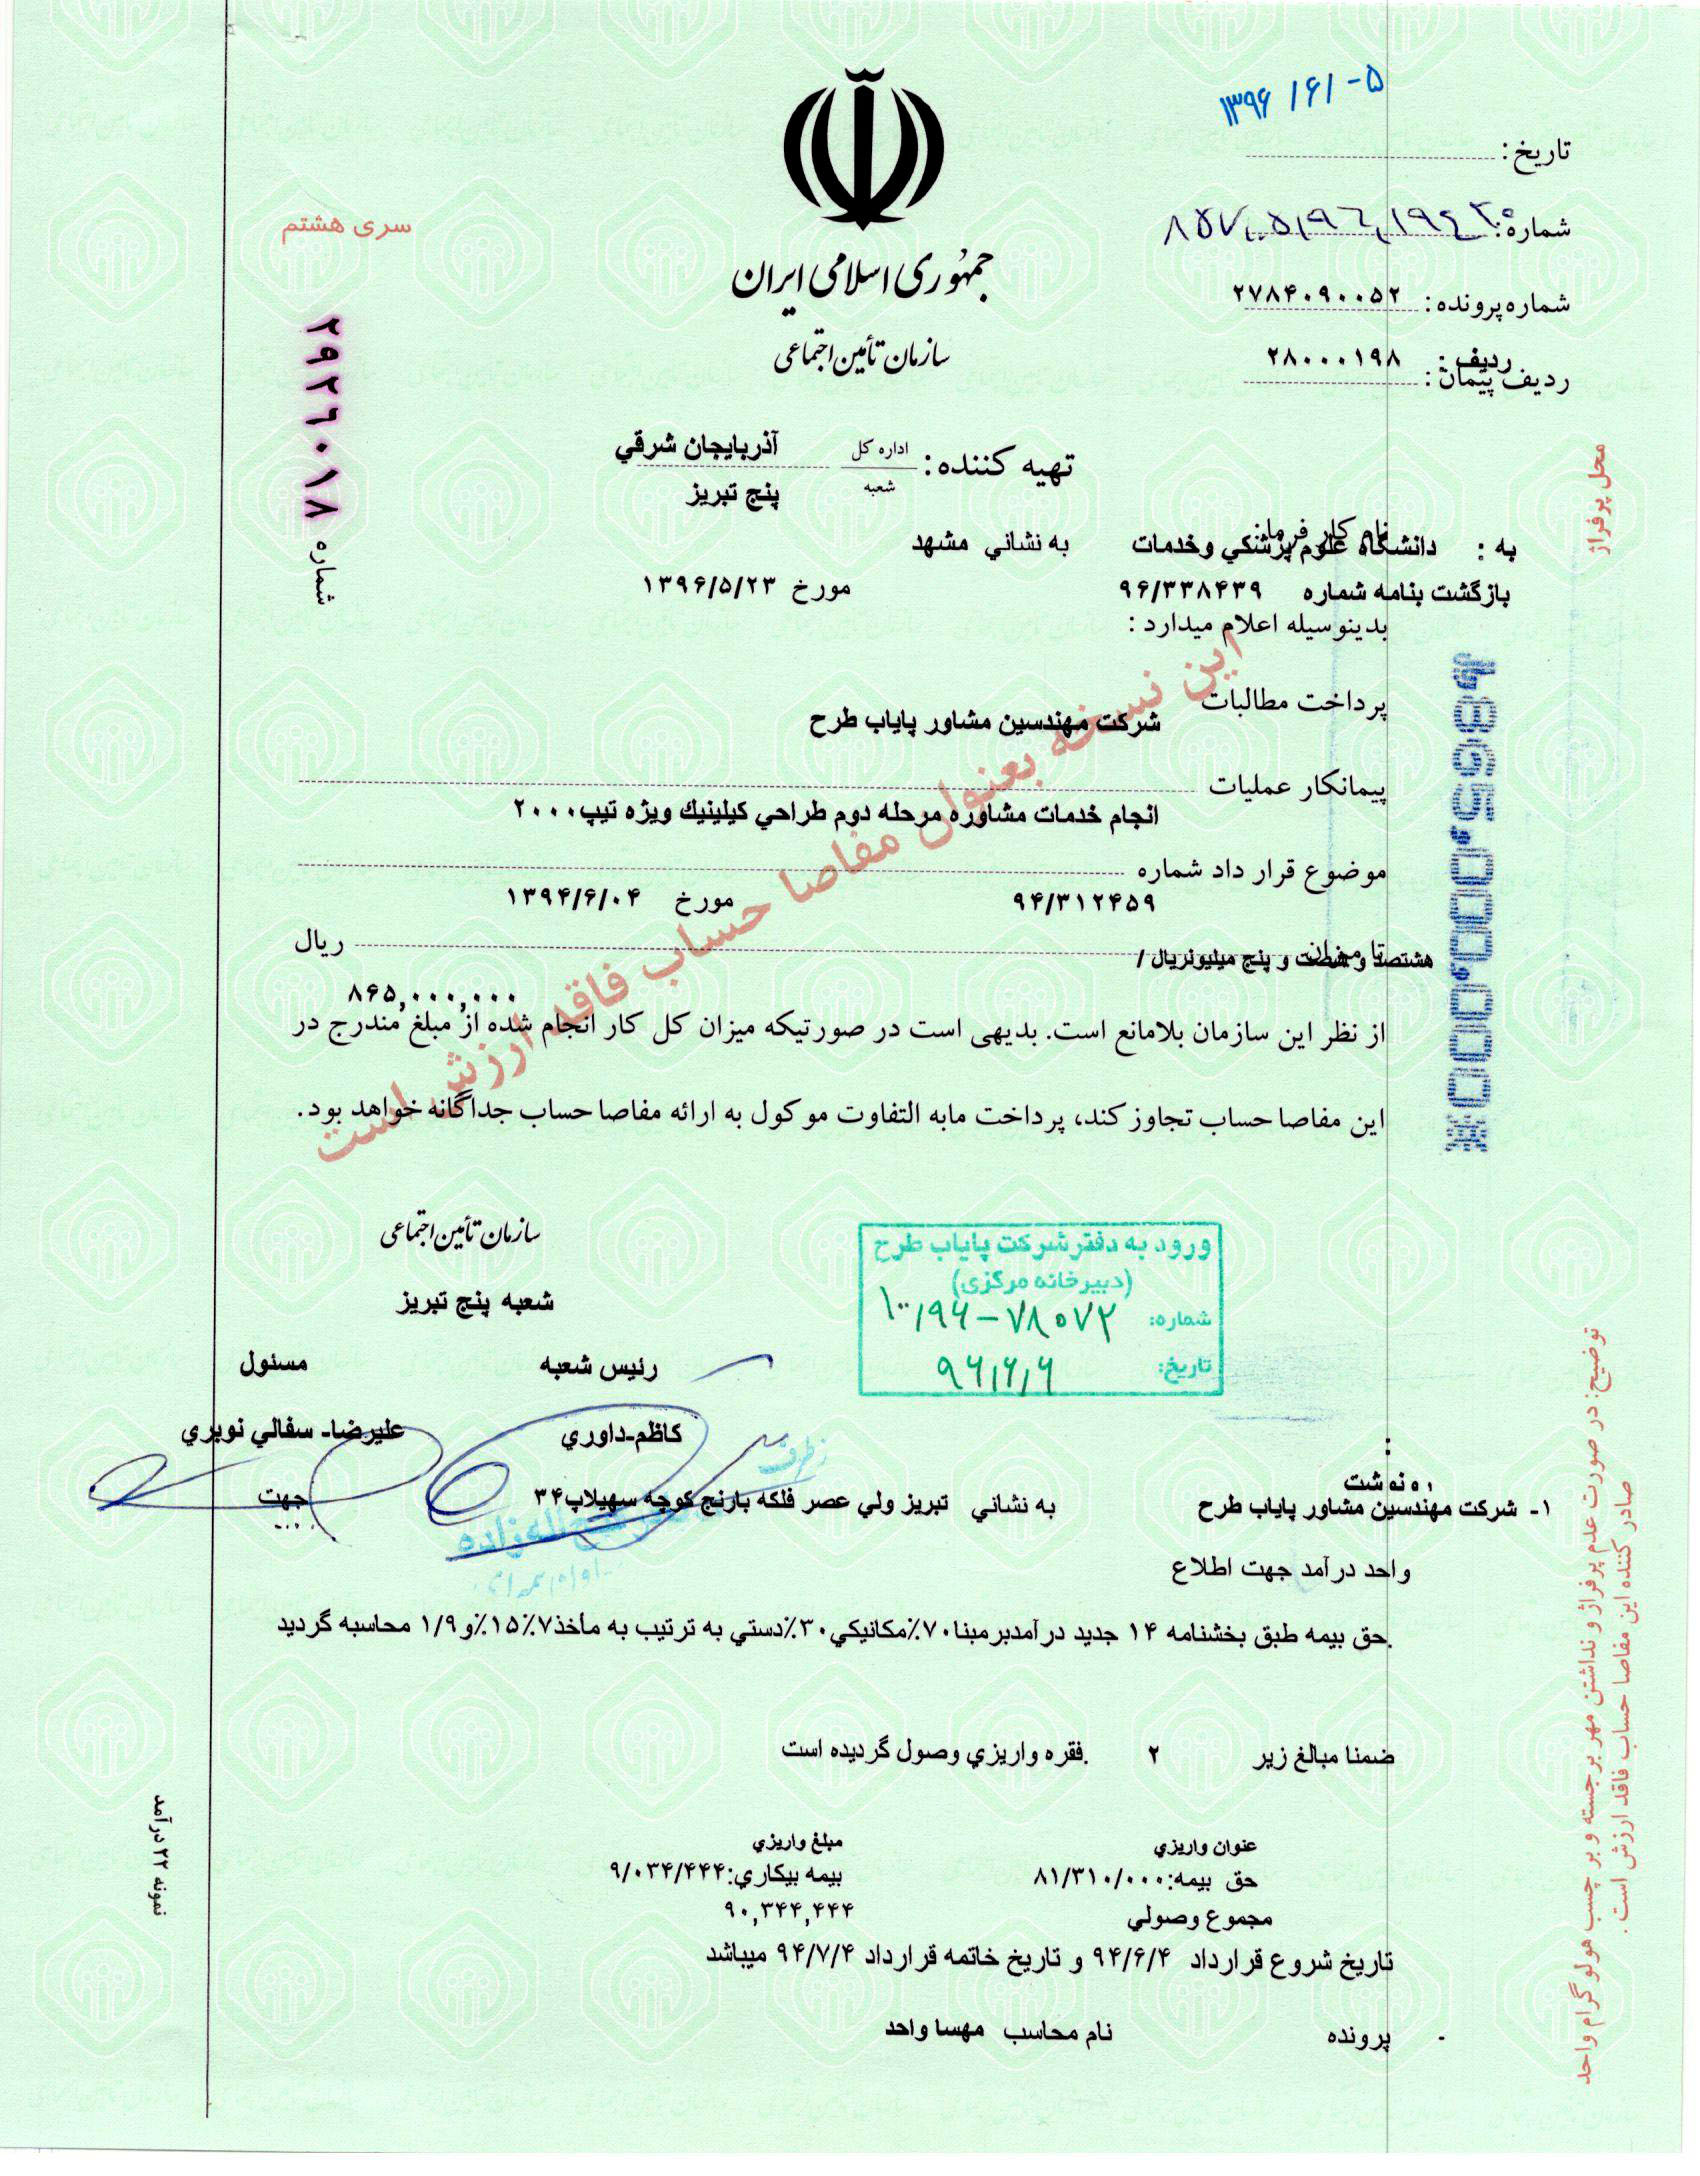 ۱۳۹۶/۶/-۵
تاریخ:
شماره:
شماره پرونده: ۲۷۸۴۰۹۰۰۵۲
ردیف: ۲۸۰۰۰۱۹۸
ردیف پیمان:
جمهوری اسلامی ایران
سازمان تأمین اجتماعی
سری هشتم
شماره ۲۹۲۶۰۱۸
تهیه کننده: اداره کل آذربایجان شرقي
شعبه پنج تبریز
محل پرفراژ
نام کارفرما:
به : دانشگاه علوم پزشکي وخدمات به نشاني مشهد
بازگشت بنامه شماره ۹۶/۳۳۸۴۳۹ مورخ ۱۳۹۶/۵/۲۳
بدینوسیله اعلام میدارد :
پرداخت مطالبات شرکت مهندسین مشاور پایاب طرح
پیمانکار عملیات
انجام خدمات مشاوره مرحله دوم طراحي کیلینیك ویژه تیپ۲۰۰۰
موضوع قرار داد شماره
۹۴/۳۱۲۴۵۹ مورخ ۱۳۹۴/۶/۰۴
تا میزان هشتصد و شصت و پنج میلیونریال / ریال
۸۶۵,۰۰۰,۰۰۰
از نظر این سازمان بلامانع است. بدیهی است در صورتیکه میزان کل کار انجام شده از مبلغ مندرج در
این مفاصا حساب تجاوز کند، پرداخت مابه التفاوت موکول به ارائه مفاصا حساب جداگانه خواهد بود.
این نسخه بعنوان مفاصا حساب فاقد ارزش است
سازمان تأمین اجتماعی
شعبه پنج تبریز
ورود به دفتر شرکت پایاب طرح
(دبیرخانه مرکزی)
شماره: ۱۰۰/۹۶-۷۸۰۷۲
تاریخ: ۹۶/۶/۶
رئیس شعبه مسئول
کاظم-داوري علیرضا- سفالي نوبري
جهت
رونوشت
۱- شرکت مهندسین مشاور پایاب طرح به نشاني تبریز ولي عصر فلکه بارنج کوچه سهیلاپ۳۴
واحد درآمد جهت اطلاع
حق بیمه طبق بخشنامه ۱۴ جدید درآمدبرمبنا۷۰٪مکانیکي۳۰٪دستي به ترتیب به مأخذ۷٪۱۵٪و۱/۹ محاسبه گردید.
ضمنا مبالغ زیر ۲ فقره واریزي وصول گردیده است.
عنوان واریزي مبلغ واریزي
حق بیمه:۸۱/۳۱۰/۰۰۰ بیمه بیکاري:۹/۰۳۴/۴۴۴
مجموع وصولي ۹۰,۳۴۴,۴۴۴
تاریخ شروع قرارداد ۹۴/۶/۴ و تاریخ خاتمه قرارداد ۹۴/۷/۴ میباشد
- پرونده نام محاسب مهسا واحد
نمونه ۲۲ درآمد
توضیح: در صورت عدم پرفراژ و نداشتن مهر برجسته و برچسب هولوگرام واحد
صادر کننده این مفاصا حساب فاقد ارزش است.